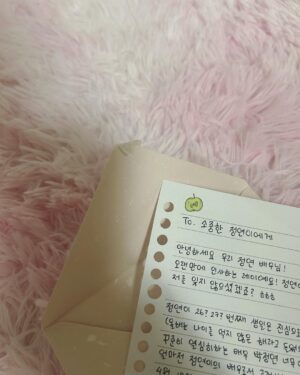 To. 소중한 정연이에게
안녕하세요 우리 정연 배우님!
오랜만에 인사하는 레이예요! 정연
저를 잊지 않으셨겠죠? ㅎㅎㅎ
정연이 26? 27? 번째 생일을 진심으로
(올해는 나이를 먹지 않은 해라고
꾸준히 열심히하는 배우 박정연 너무
얼마전 정연이의 배우로서
4월